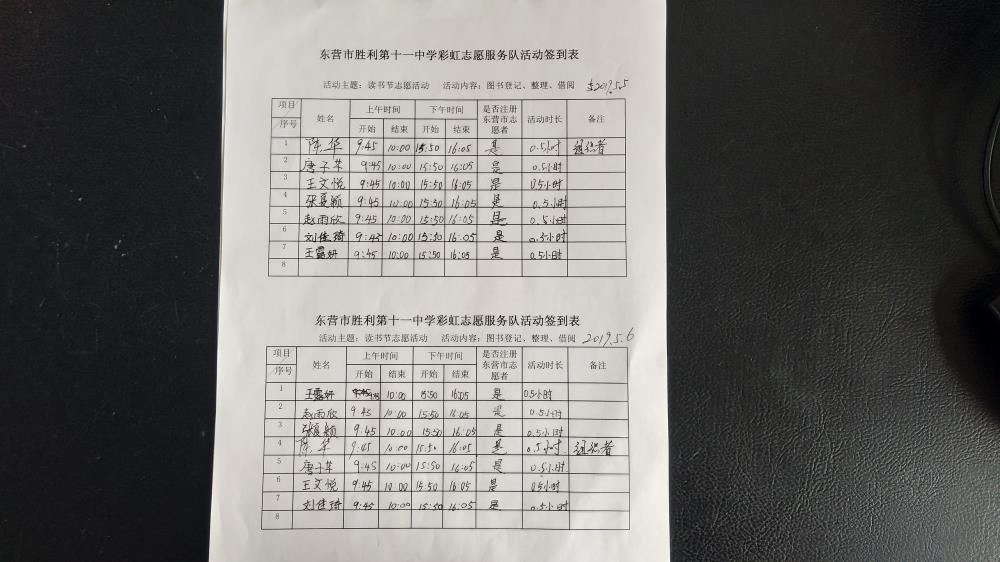 东营市胜利第十一中学彩虹志愿服务队活动签到表
活动主题：读书节志愿活动 活动内容：图书登记、整理、借阅 2019.5.5
项目 序号 姓名 上午时间 下午时间 是否注册东营市志愿者 活动时长 备注
开始 结束 开始 结束
1 陈华 9:45 10:00 15:50 16:05 是 0.5小时 组织者
2 唐子苹 9:45 10:00 15:50 16:05 是 0.5小时
3 王文悦 9:45 10:00 15:50 16:05 是 0.5小时
4 张夏颖 9:45 10:00 15:50 16:05 是 0.5小时
5 赵雨欣 9:45 10:00 15:50 16:05 是 0.5小时
6 刘佳琦 9:45 10:00 15:50 16:05 是 0.5小时
7 王露妍 9:45 10:00 15:50 16:05 是 0.5小时
8
东营市胜利第十一中学彩虹志愿服务队活动签到表
活动主题：读书节志愿活动 活动内容：图书登记、整理、借阅 2019.5.6
项目 序号 姓名 上午时间 下午时间 是否注册东营市志愿者 活动时长 备注
开始 结束 开始 结束
1 王露妍 9:45 10:00 15:50 16:05 是 0.5小时
2 赵雨欣 9:45 10:00 15:50 16:05 是 0.5小时
3 张夏颖 9:45 10:00 15:50 16:05 是 0.5小时
4 陈华 9:45 10:00 15:50 16:05 是 0.5小时 组织者
5 唐子苹 9:45 10:00 15:50 16:05 是 0.5小时
6 王文悦 9:45 10:00 15:50 16:05 是 0.5小时
7 刘佳琦 9:45 10:00 15:50 16:05 是 0.5小时
8